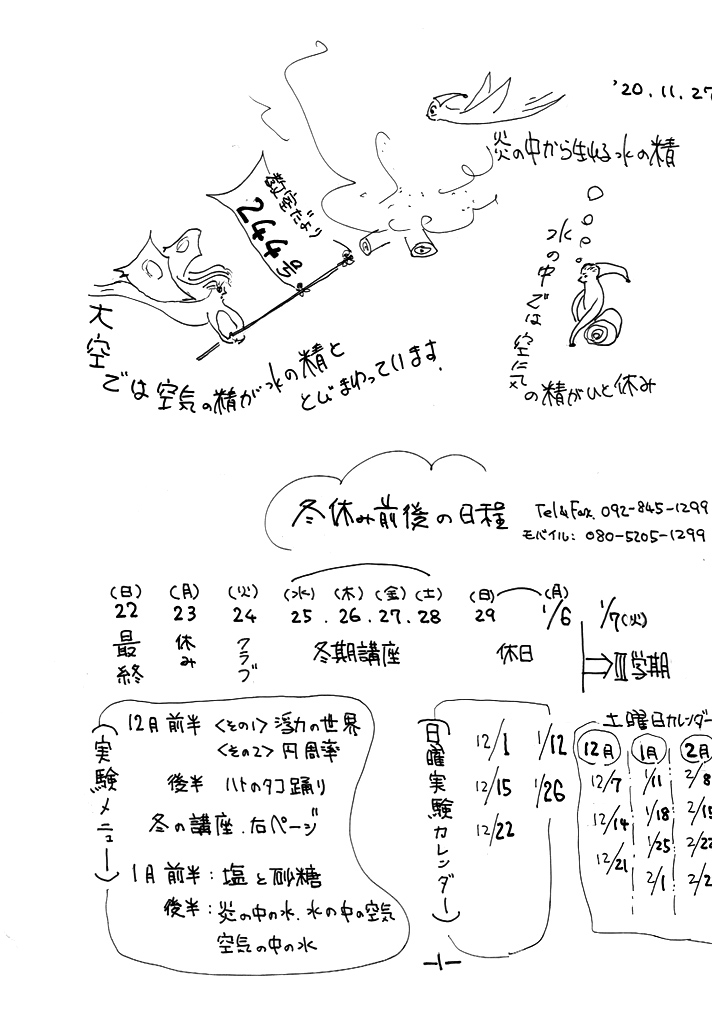 '20.11.27
炎の中から生れる水の精
教室だより
244号
水の中では空気の精がひと休み
大空では空気の精が水の精と
とびまわっています.
冬休み前後の日程
Tel&Fax. 092-845-1299
モバイル: 080-5205-1299
(日) (月) (火) (水) (木) (金) (土) (日) (月)
22 23 24 25.26.27.28 29 1/6 1/7(火)
最終 休み クラブ 冬期講座 休日 Ⅲ学期
(実験メニュー)
12月前半 <その1> 浮力の世界
<その2> 円周率
後半 ハトのタコ踊り
冬の講座.右ページ
1月前半: 塩と砂糖
後半: 炎の中の水. 水の中の空気
空気の中の水
(日曜実験カレンダー)
12/1 1/12
12/15 1/26
12/22
土曜日カレンダー
12月 1月 2月
12/7 1/11 2/8
12/14 1/18 2/15
12/21 1/25 2/22
2/1 2/2
-1-